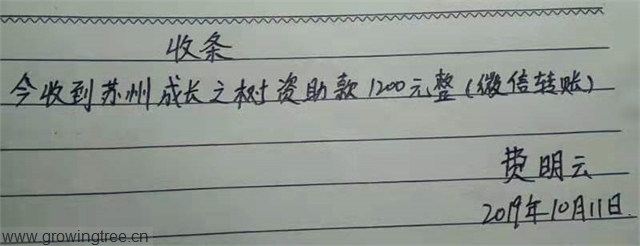 收条
今收到苏州成长之树资助款1200元整(微信转账)
费明云
2019年10月11日
www.growingtree.cn